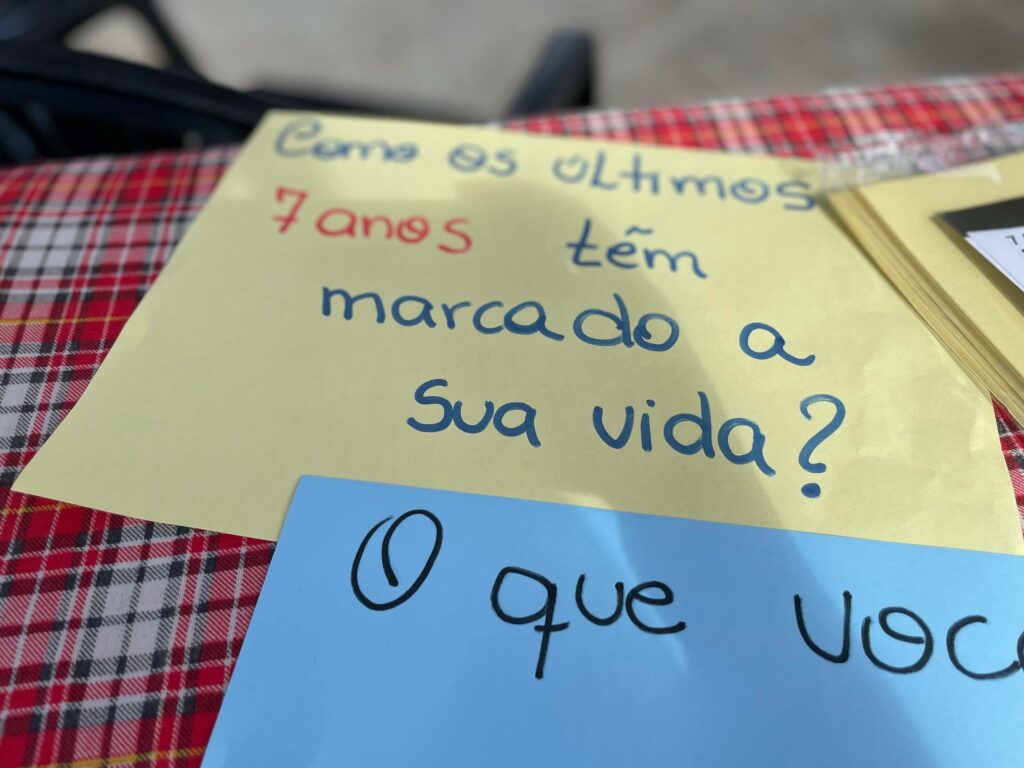 Como os últimos
7 anos têm
marcado a
sua vida?
O que voc